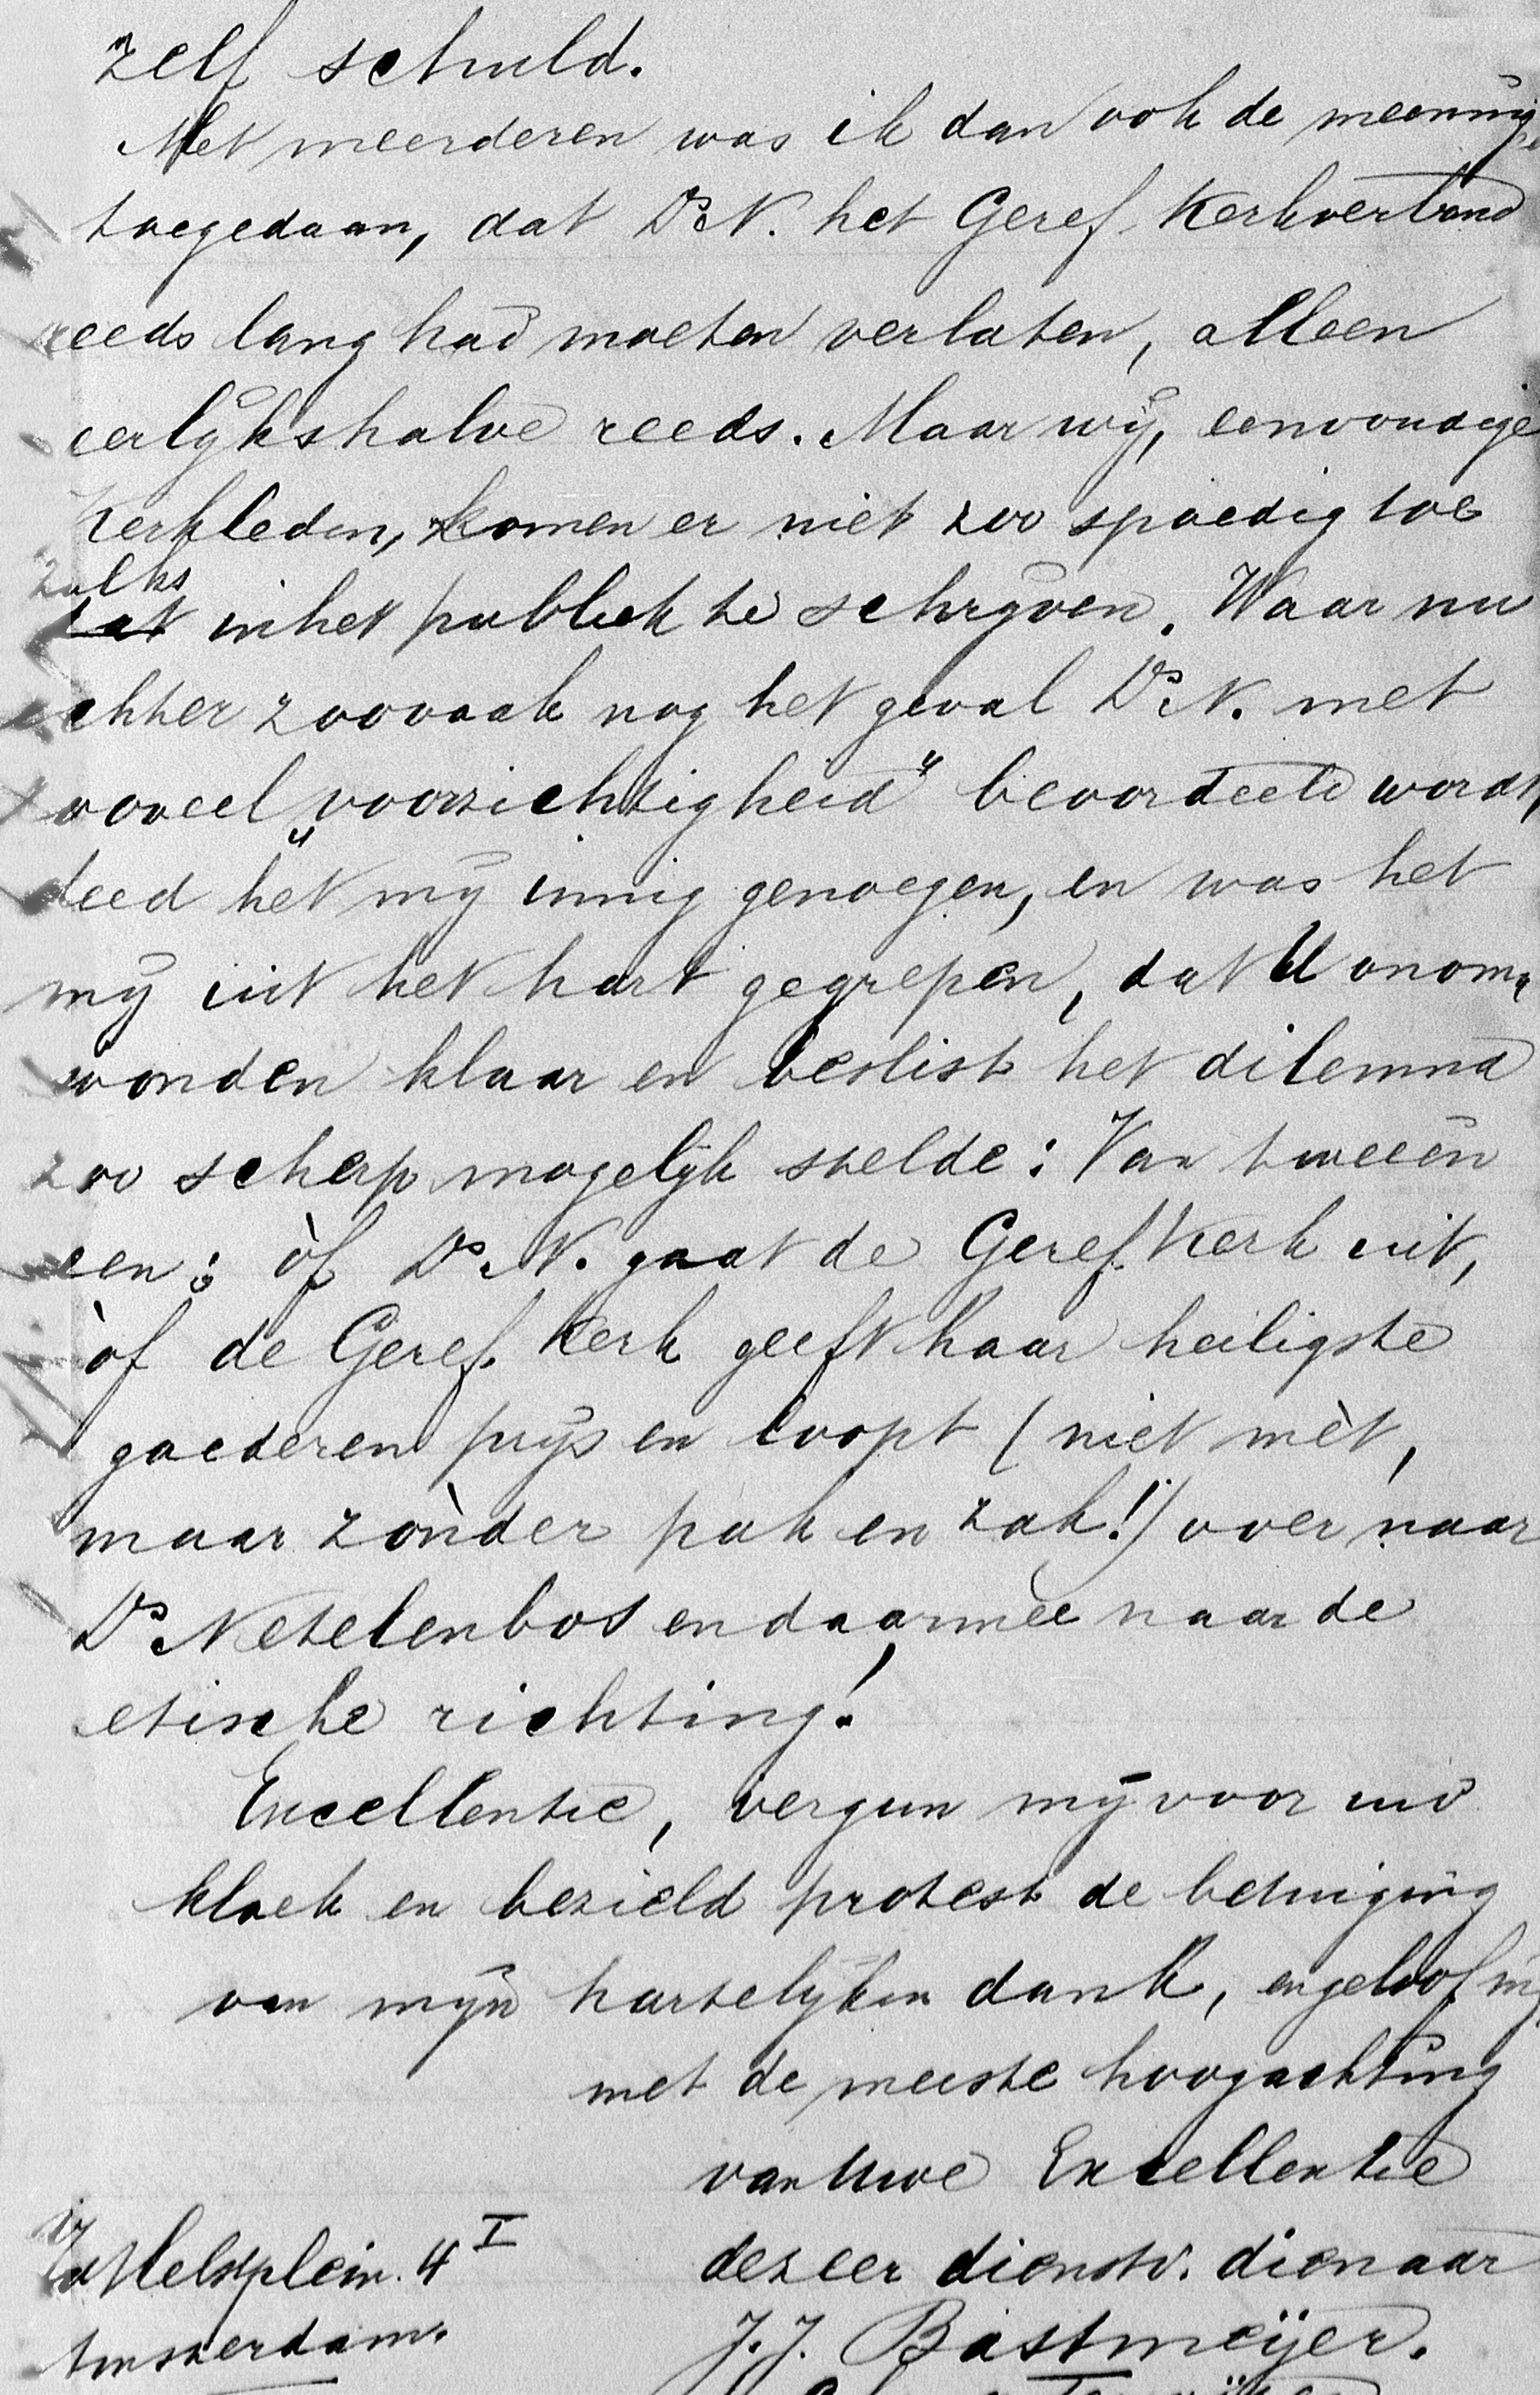 zelf schuld.
Met meerderen was ik dan ook de meening
toegedaan, dat Ds N. het Geref. Kerkverband
reeds lang had moeten verlaten, alleen
eerlijkshalve reeds. Maar wij, eenvoudige
Kerkleden, komen er niet zoo spoedig toe
zulks
dat in het publiek te schrijven. Waar nu
echter zoovaak nog het geval Ds N. met
zooveel „voorzichtigheid” beoordeeld wordt,
deed het mij innig genoegen, en was het
mij uit het hart gegrepen, dat U onom-
wonden klaar en beslist het dilemma
zoo scherp mogelijk stelde: Van tweeën
een: òf Ds N. gaat de Geref. Kerk uit,
òf de Geref. Kerk geeft haar heiligste
goederen prijs en loopt (niet mèt,
maar zònder pak en zak!) over naar
Ds Netelenbos en daarmee naar de
etische richting!
Excellentie, vergun mij voor uw
kloek en bezield protest de betuiging
van mijn hartelijken dank, en geloof mij
met de meeste hoogachting
van Uwe Excellentie
dezeer dienstv. dienaar
4 I
J. J. Bastmeijer.
Amsterdam.